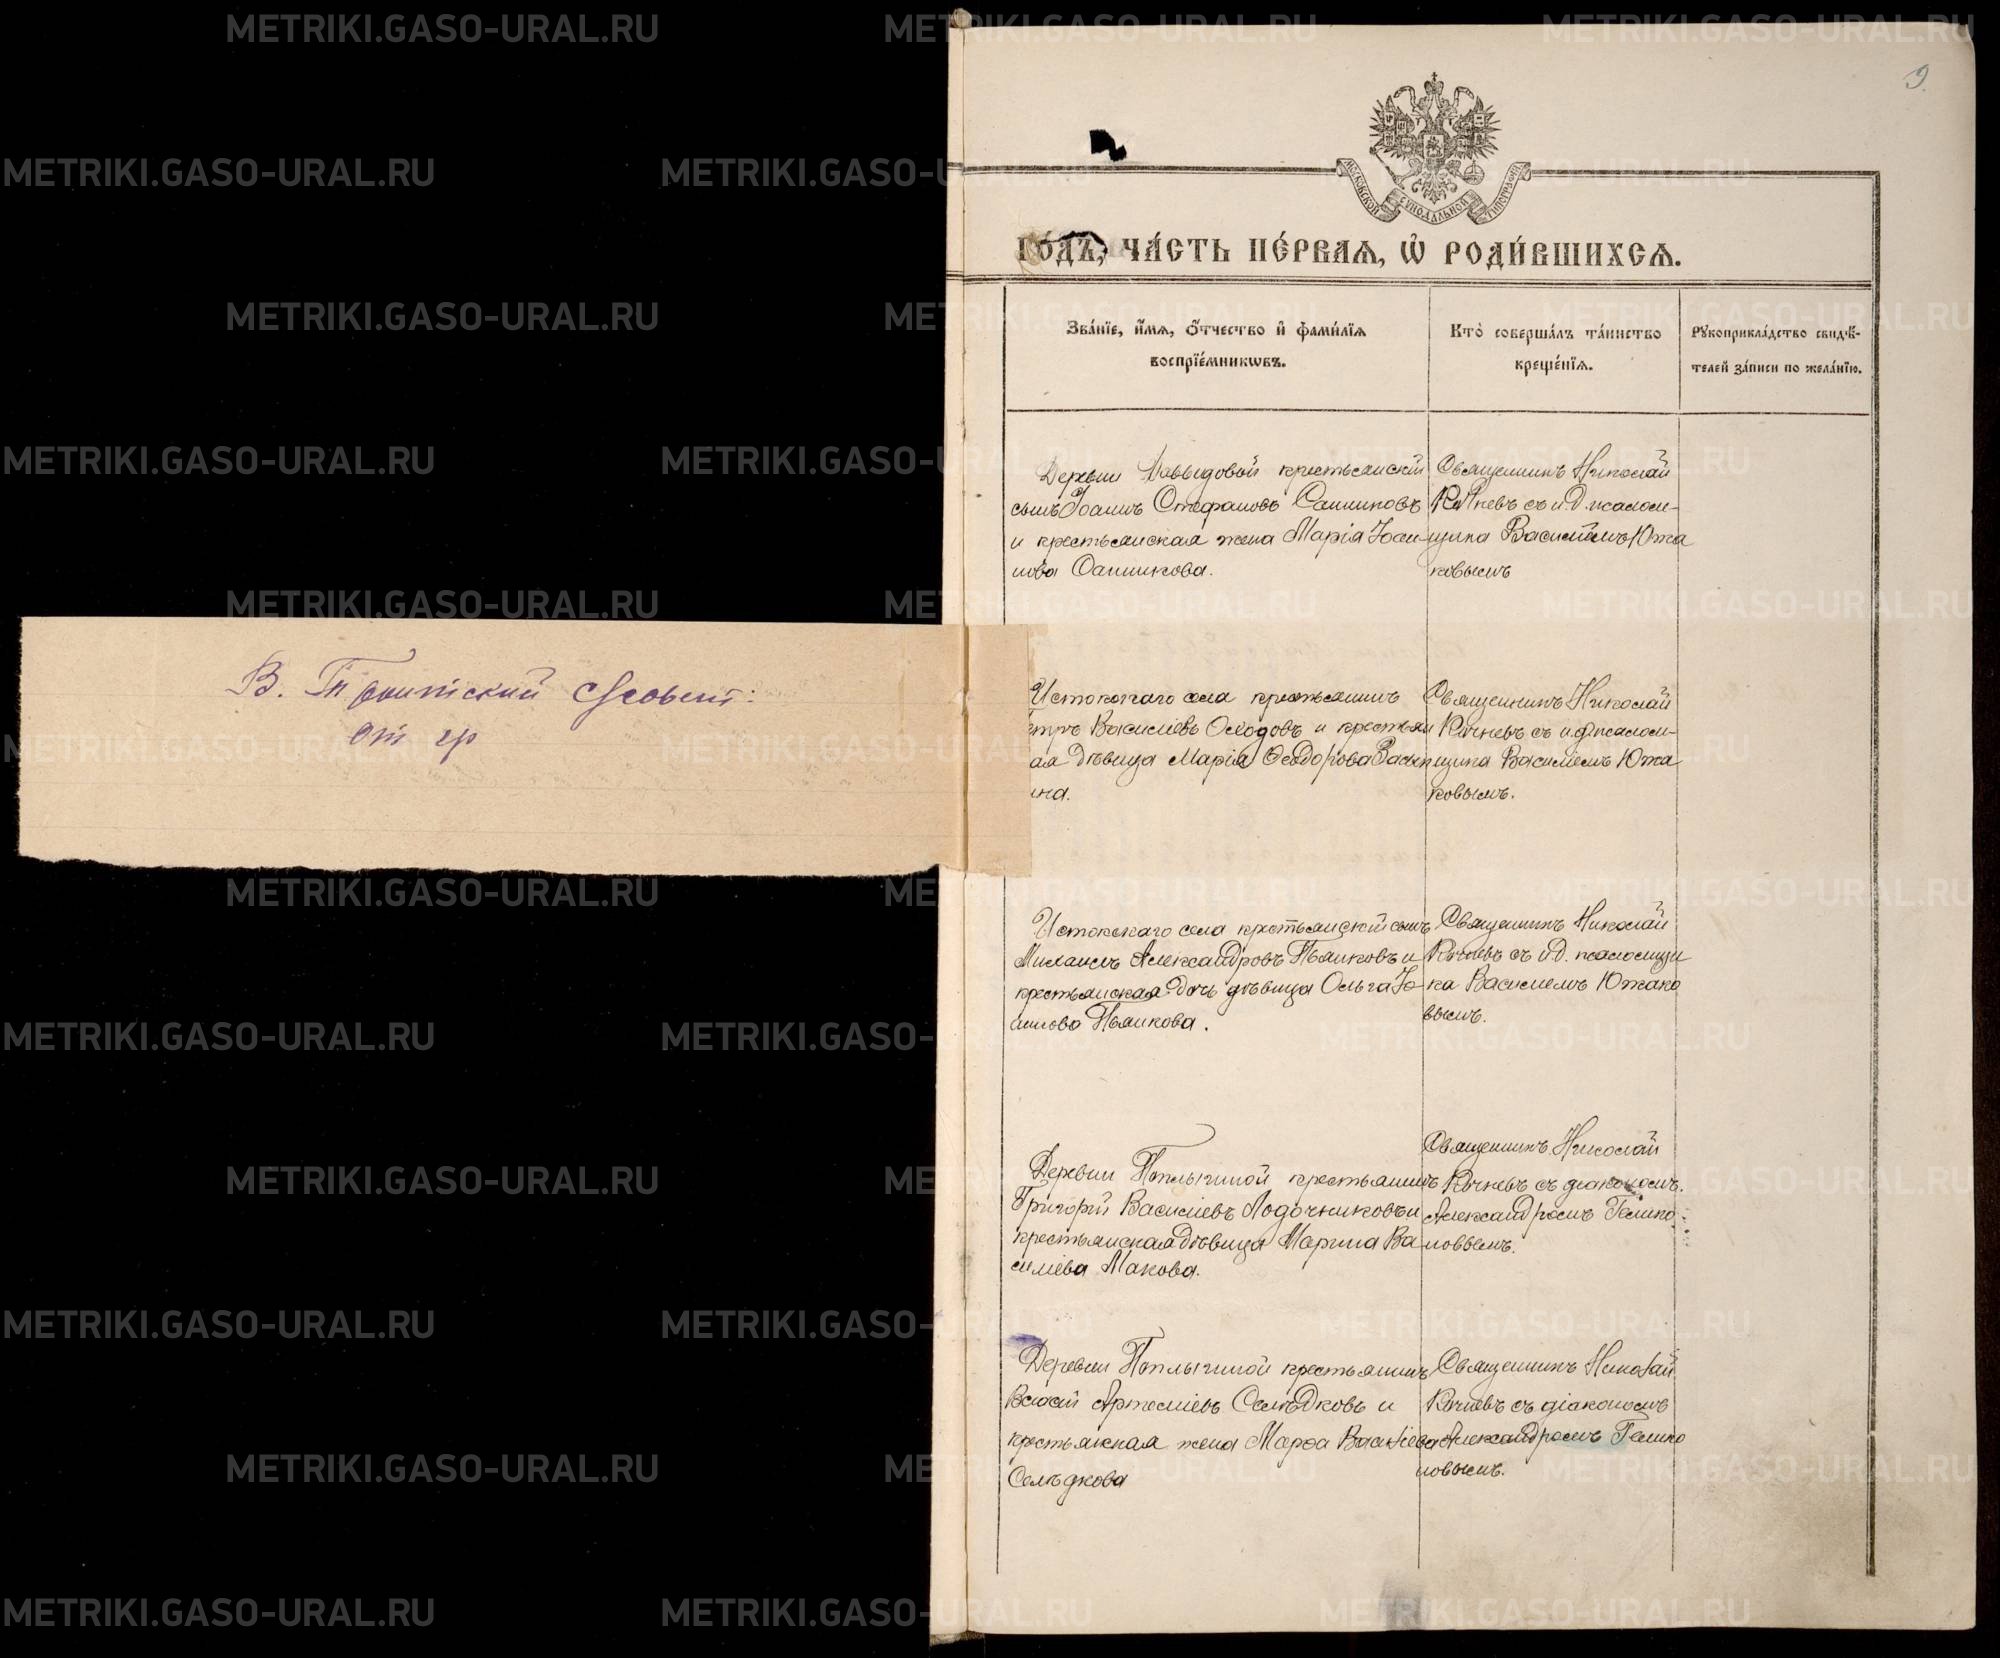 9.
МОСКОВСКОЙ СѴНОДАЛЬНОЙ ТИПОГРАФІИ
ГО́ДЪ, ЧА́СТЬ ПЕ́РВАѦ, Ѡ҆ РОДИ́ВШИХСѦ.
Зва́нїе, и҆́мѧ, ѻ҆́тчество и҆ фами́лїѧ
воспрїе́мникѡвъ.
Кто̀ соверша́лъ та́инство
креще́нїѧ.
Рꙋкоприкла́дство свидѣ́-
телей за́писи по жела́нїю.
Деревни Давыдовой крестьянскій
сынъ Іоаннъ Стефановъ Санниковъ
и крестьянская жена Марія Іоан-
нова Санникова.
Священникъ Николай
Кочневъ съ и.д. псалом-
щика Василіемъ Южа
ковымъ
Истокскаго села крестьянинъ
етръ Василіевъ Оходовъ и крестьян
ая дѣвица Марія Ѳеодорова
ина.
Священникъ Николай
Кочневъ съ и.д. псалом-
щика Василіемъ Южа
ковымъ.
Истокскаго села крестьянскій сынъ
Михаилъ Александровъ Пьянковъ и
крестьянская дочь дѣвица Ольга Іо
аннова Пьянкова.
Священникъ Николай
Кочневъ съ и.д. псаломщи
ка Василіемъ Южако
вымъ.
Деревни Потлыгиной крестьянинъ
Григорій Василіевъ Лодочниковъ и
крестьянская дѣвица Марина Ва
силіева Макова.
Священникъ Николай
Кочневъ съ діакономъ
Александромъ Гелико
новымъ.
Деревни Потлыгиной крестьянинъ
Василій Артеміевъ Селѣдковъ и
крестьянская жена Марѳа Василіева
Селѣдкова
Священникъ Николай
Кочневъ съ діакономъ
Александромъ Гелико
новымъ.
В. Троитский с/совет:
от гр
METRIKI.GASO-URAL.RU